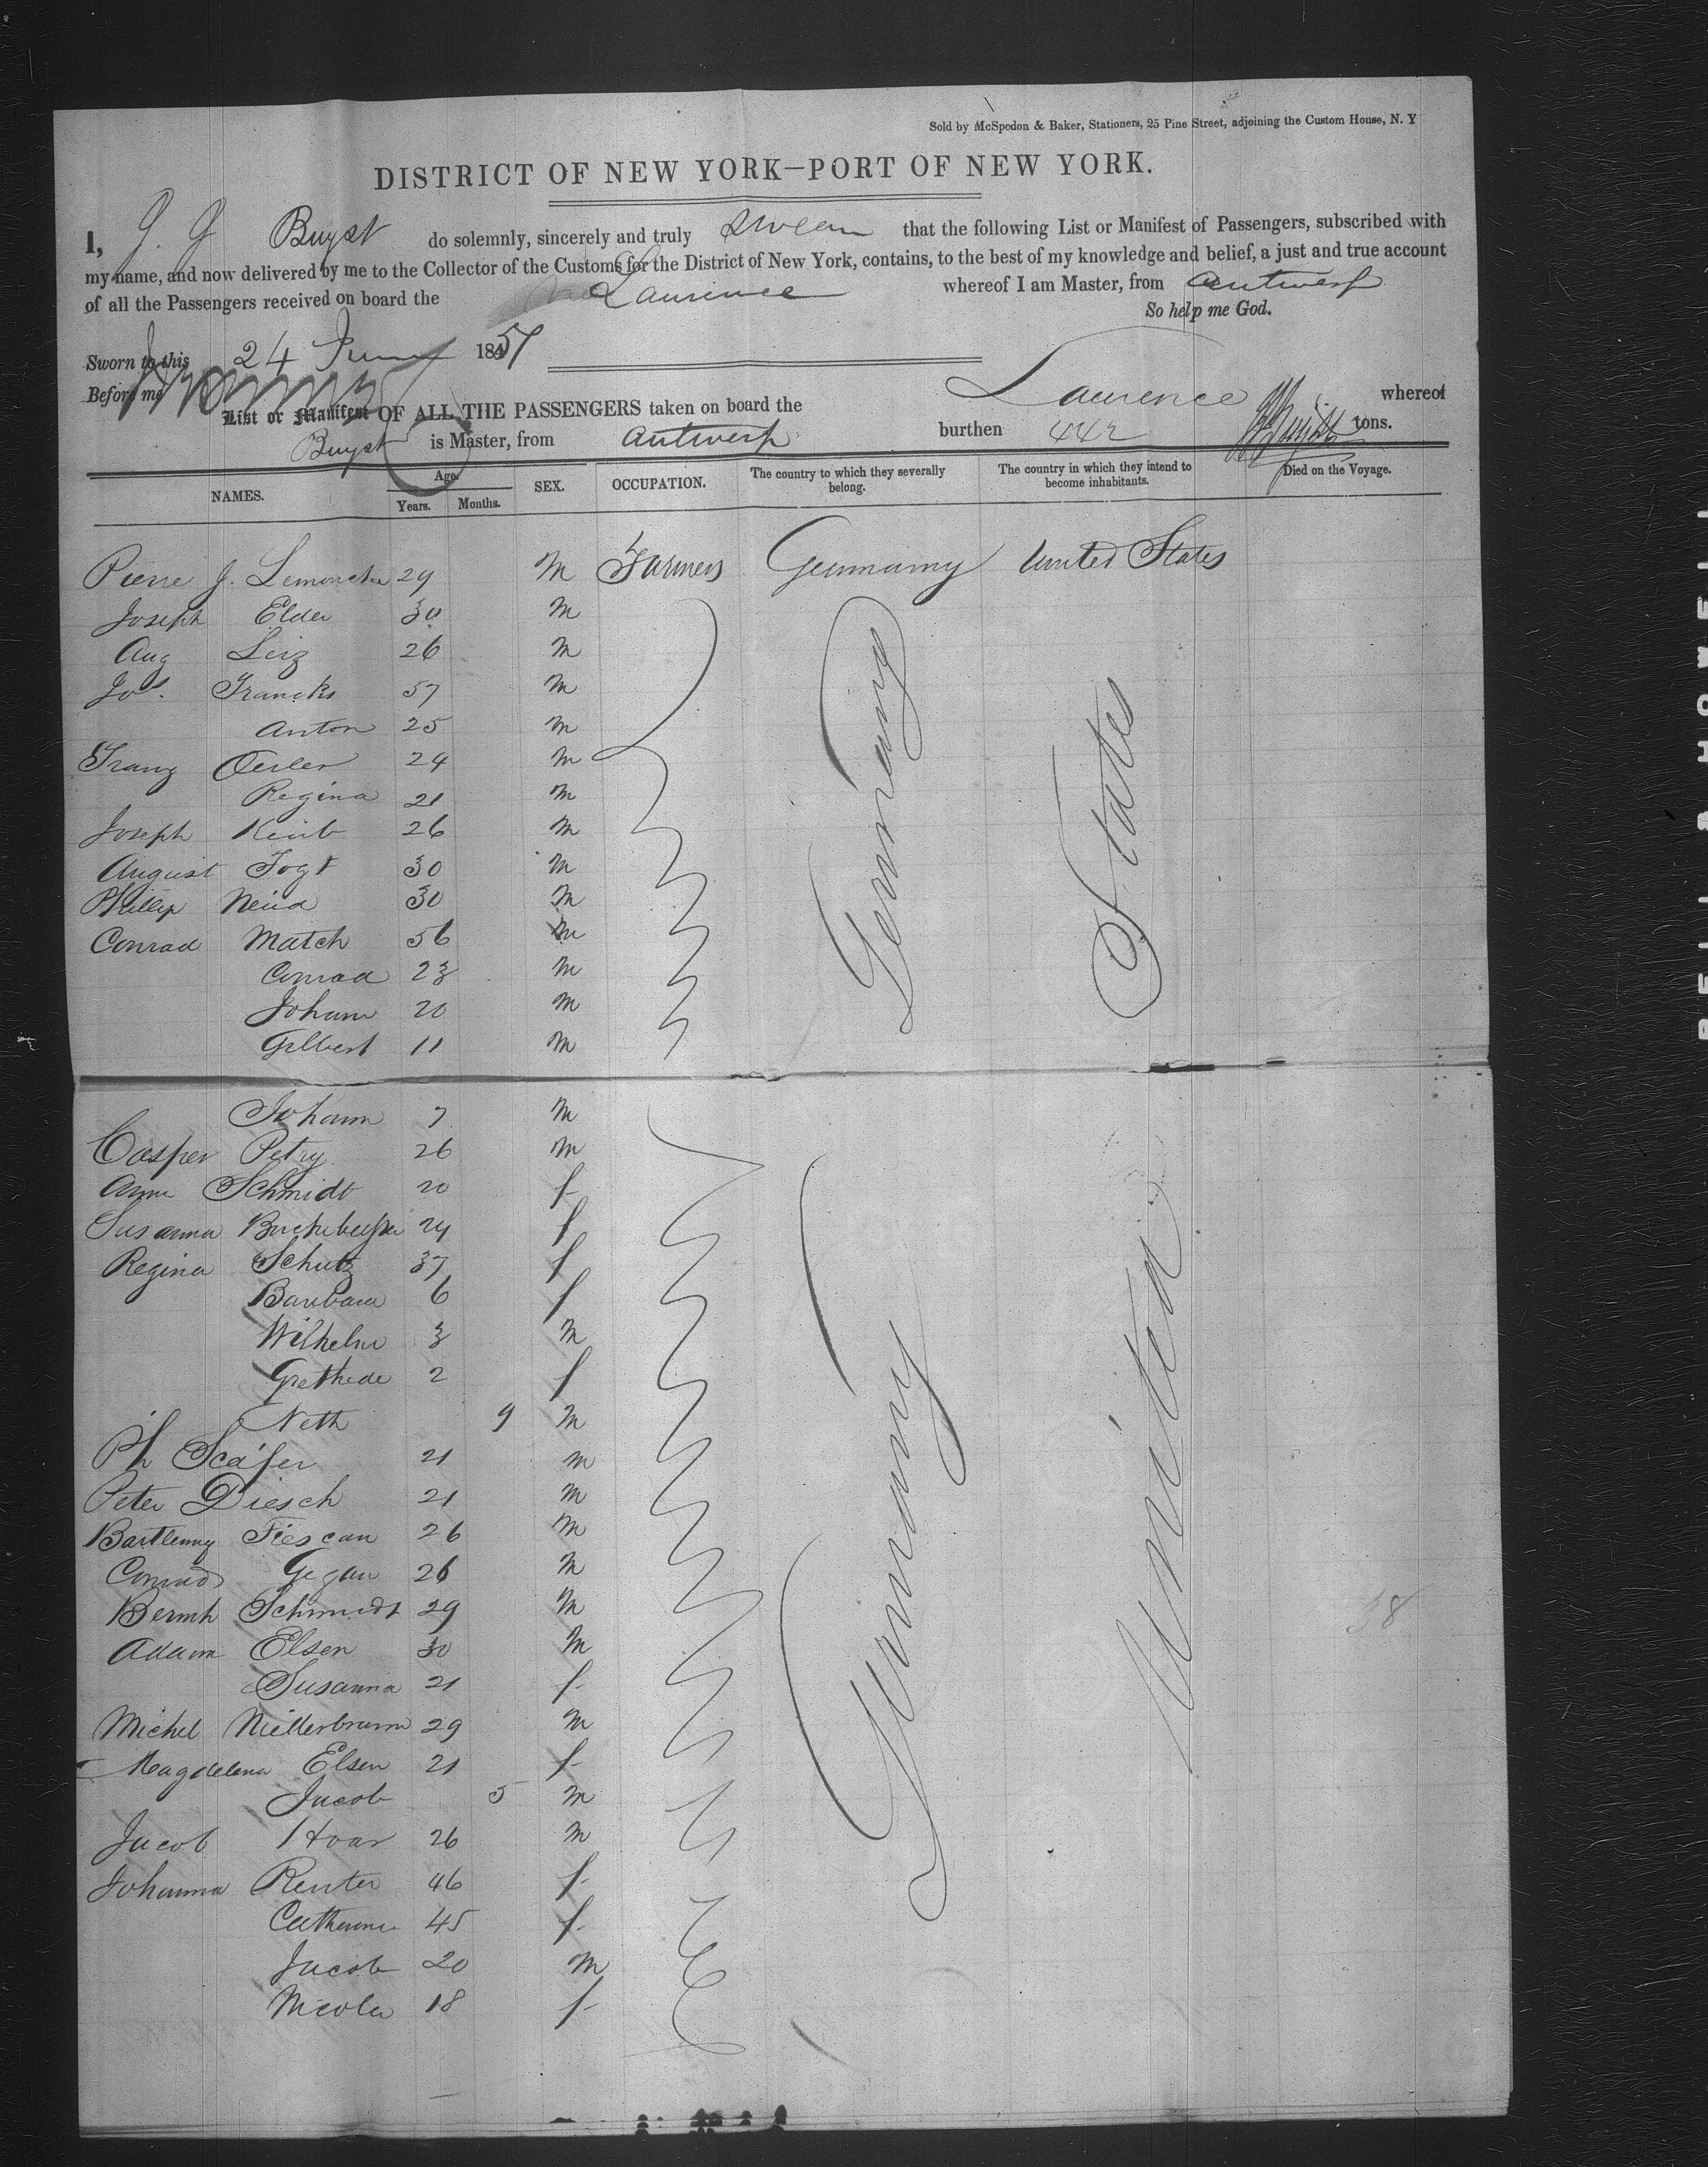 Sold by McSpedon & Baker, Stationers, 25 Pine Street, adjoining the Custom House, N. Y
DISTRICT OF NEW YORK—PORT OF NEW YORK.
I, J. J Buyst do solemnly, sincerely and truly swear that the following List or Manifest of Passengers, subscribed with
my name, and now delivered by me to the Collector of the Customs for the District of New York, contains, to the best of my knowledge and belief, a just and true account
of all the Passengers received on board the Laurence whereof I am Master, from Antwerp
So help me God.
Sworn to this 24 June 1851
Before me
List or Manifest OF ALL THE PASSENGERS taken on board the Laurence whereof
Buyst is Master, from Antwerp burthen 442 tons.
NAMES. Age. Years. Months. SEX. OCCUPATION. The country to which they severally belong. The country in which they intend to become inhabitants. Died on the Voyage.
Pierre J. 29 M Farmers Germany United States
Joseph Elder 30 M
Aug Leiz 26 M
Jos. Francks 57 M
Anton 25 M
Franz Oesler 24 M
Regina 21 M
Joseph 26 M
August Fogt 30 M
Phillip 30 M
Conrad Match 56 M
Conrad 23 M
Johann 20 M
Gilbert 11 M
Johann 7 M
Casper Petry 26 M
Ann Schmidt 20 f
Susanna 24 f
Regina Schutz 37 f
Barbara 6 f
Wilhelm 3 M
Grethede 2 f
Neth 9 M
Ph Scäfer 21 M
Peter Diesch 21 M
Bartlemy Fiescan 26 M
Conrad Gegan 26 M
Bernh Schmidt 29 M
Adam Elsen 30 M
Susanna 21 f
Michel Niederbrunn 29 M
Magdelena Elsen 21 f
Jacob 5 M
Jacob Hoar 26 M
Johanna Renter 46 f
Catherine 45 f
Jacob 20 M
Nicola 18 f
Germany
States
Germany
United
38